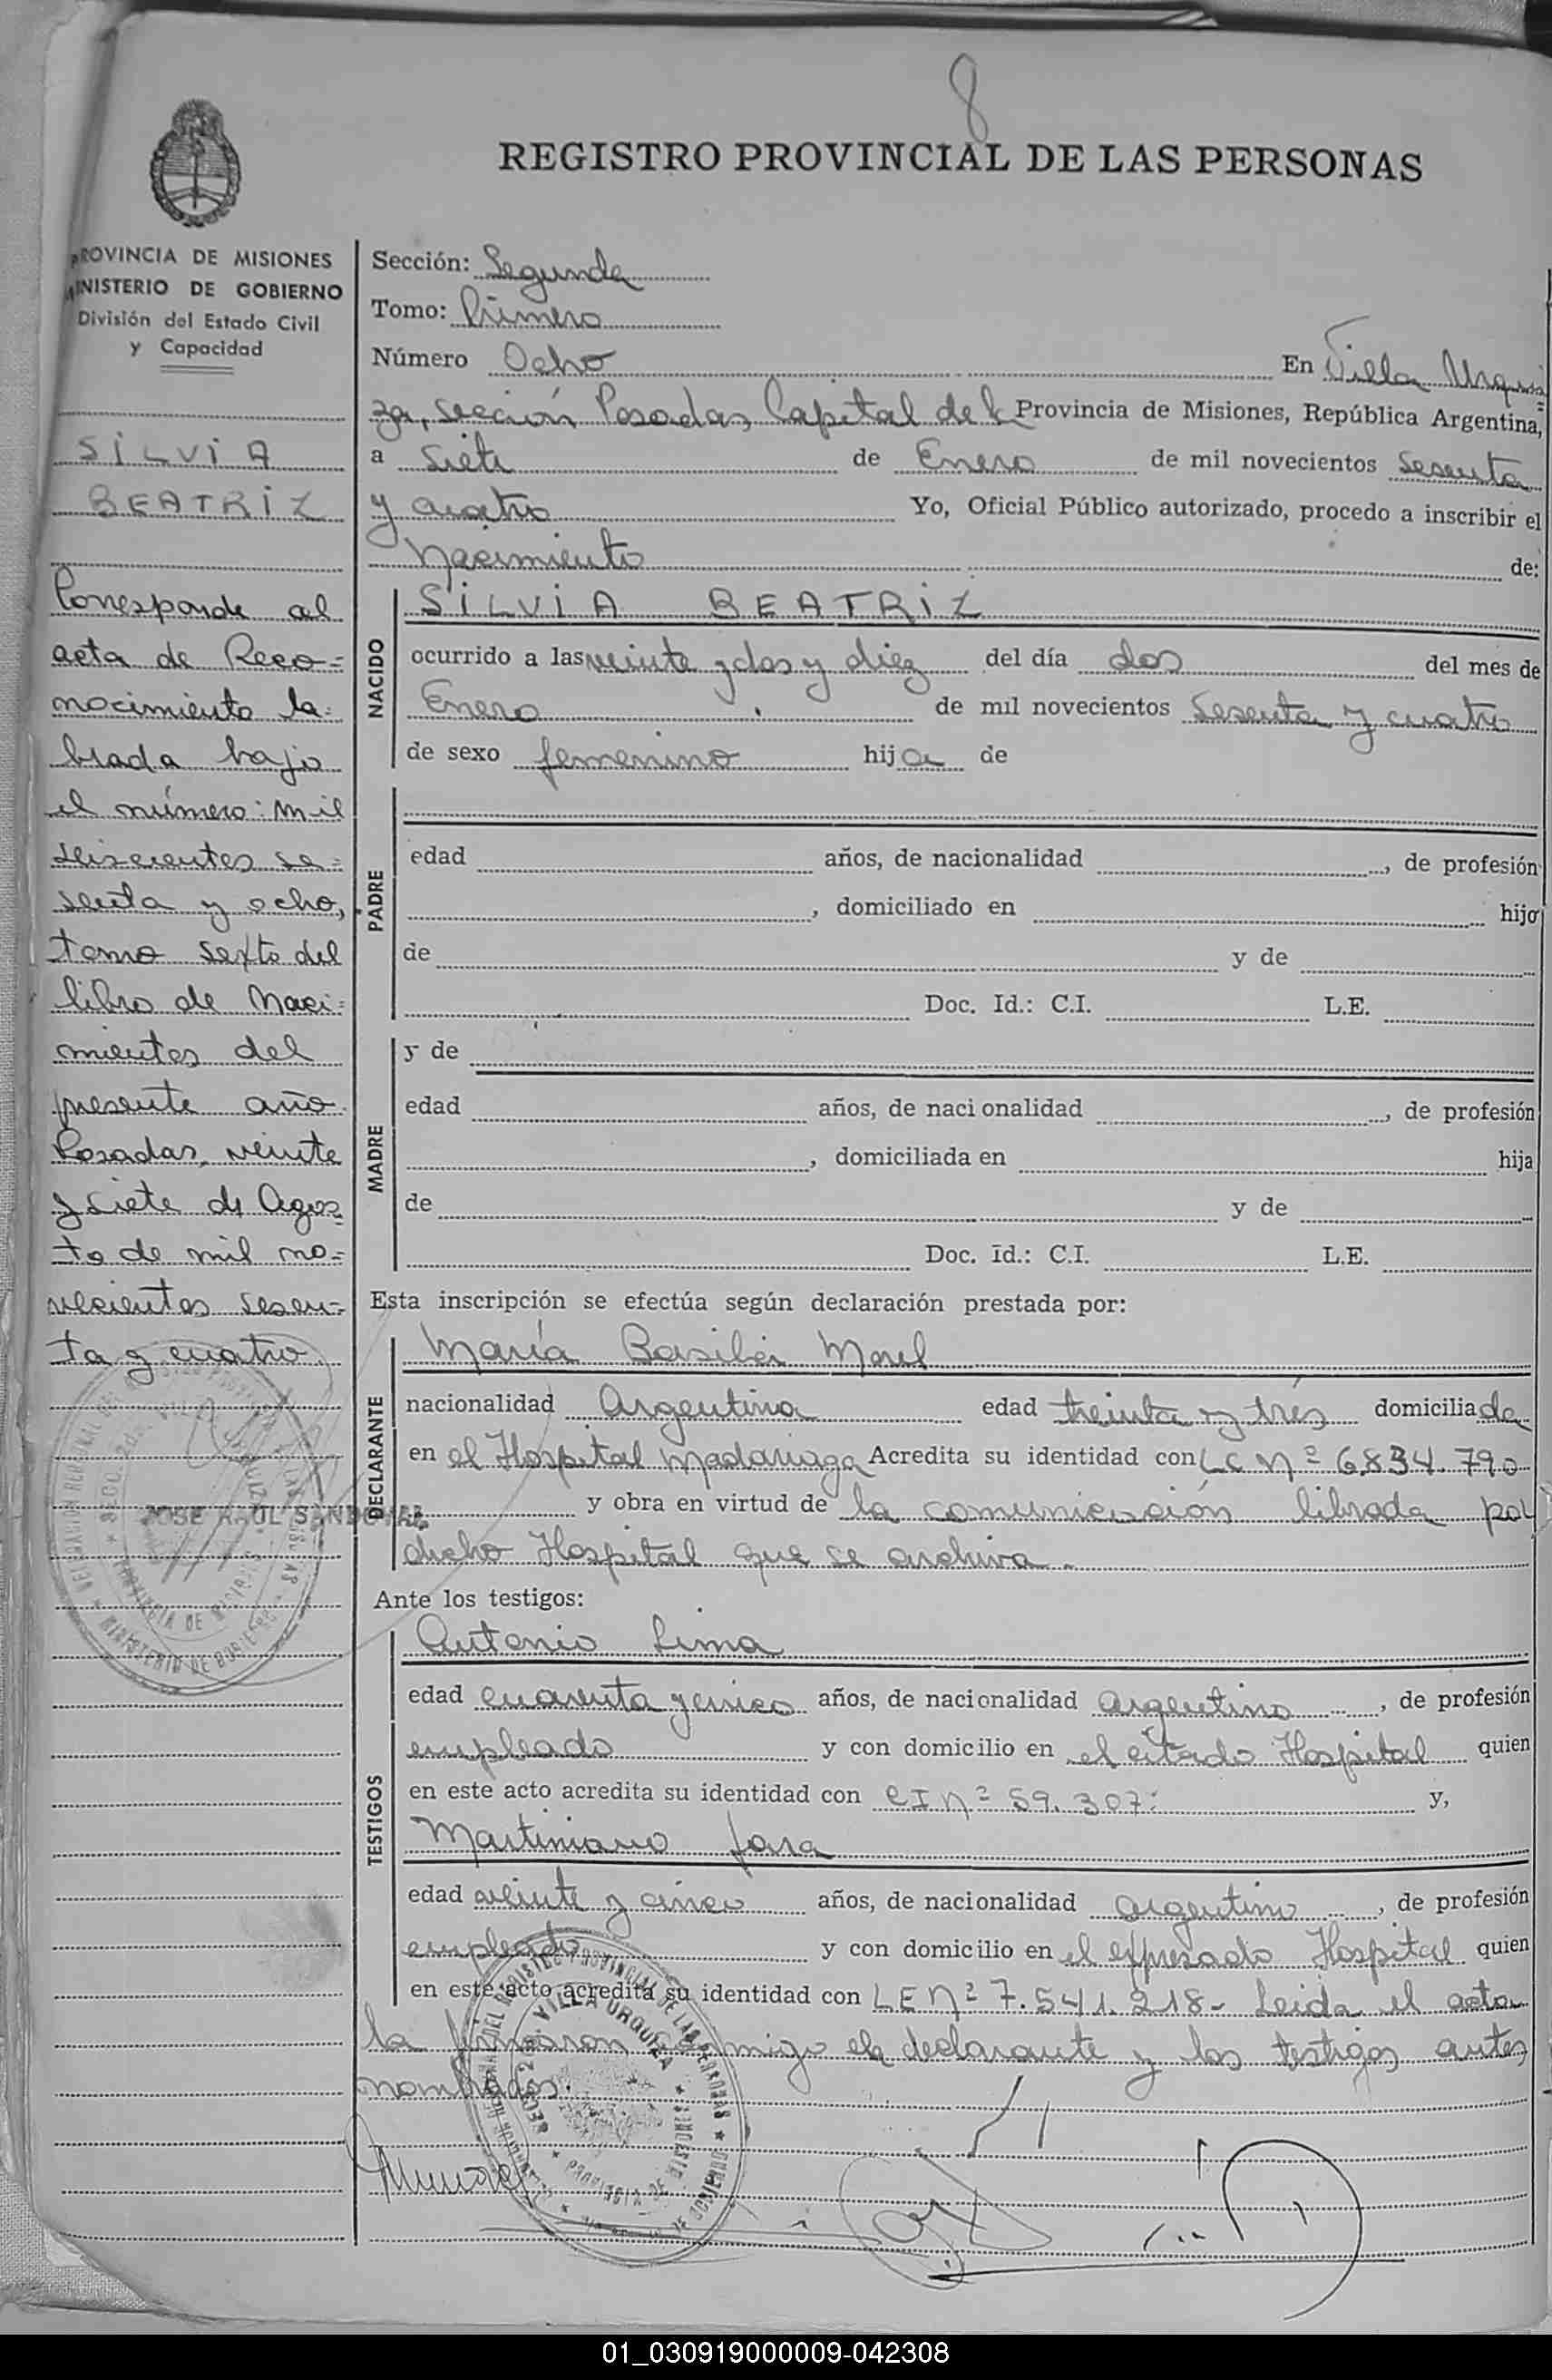 8
REGISTRO PROVINCIAL DE LAS PERSONAS
PROVINCIA DE MISIONES
MINISTERIO DE GOBIERNO
División del Estado Civil
y Capacidad
SILVIA
BEATRIZ
Corresponde al
acta de Reco=
nocimiento la=
brada bajo
el número: mil
seiscientos se=
senta y ocho,
tomo sexto del
libro de Naci=
mientos del
presente año.
Posadas, veinte
y siete de Agos=
to de mil no=
vecientos sesen=
ta y cuatro.
JOSE RAUL SANDOVAL
Sección: Segunda
Tomo: Primero
Número Ocho En Villa Urqui
za, sección Posadas, Capital de la Provincia de Misiones, República Argentina,
a siete de Enero de mil novecientos sesenta
y cuatro Yo, Oficial Público autorizado, procedo a inscribir el
nacimiento de:
NACIDO
SILVIA BEATRIZ
ocurrido a las veinte y dos y diez del día dos del mes de
Enero de mil novecientos sesenta y cuatro
de sexo femenino hija de
PADRE
edad años, de nacionalidad , de profesión
, domiciliado en hijo
de y de
Doc. Id.: C.I. L.E.
MADRE
y de
edad años, de naci onalidad , de profesión
, domiciliada en hija
de y de
Doc. Id.: C.I. L.E.
Esta inscripción se efectúa según declaración prestada por:
DECLARANTE
María Basilia Morel
nacionalidad Argentina edad treinta y tres domiciliada
en el Hospital Madariaga Acredita su identidad con LC Nº 6.834.790
y obra en virtud de la comunicación librada por
dicho Hospital que se archiva.-
Ante los testigos:
TESTIGOS
Antonio Lima
edad cuarenta y cinco años, de nacionalidad argentino , de profesión
empleado y con domicilio en el citado Hospital quien
en este acto acredita su identidad con CI Nº 59.307: y,
Martiniano Jara
edad veinte y cinco años, de nacionalidad argentino , de profesión
empleado y con domicilio en el expresado Hospital quien
en este acto acredita su identidad con LE Nº 7.541.218- Leída el acta
la firmaron conmigo la declarante y los testigos antes
nombrados.
VILLA URQUIZA
PROVINCIA DE MISIONES
01_030919000009-042308